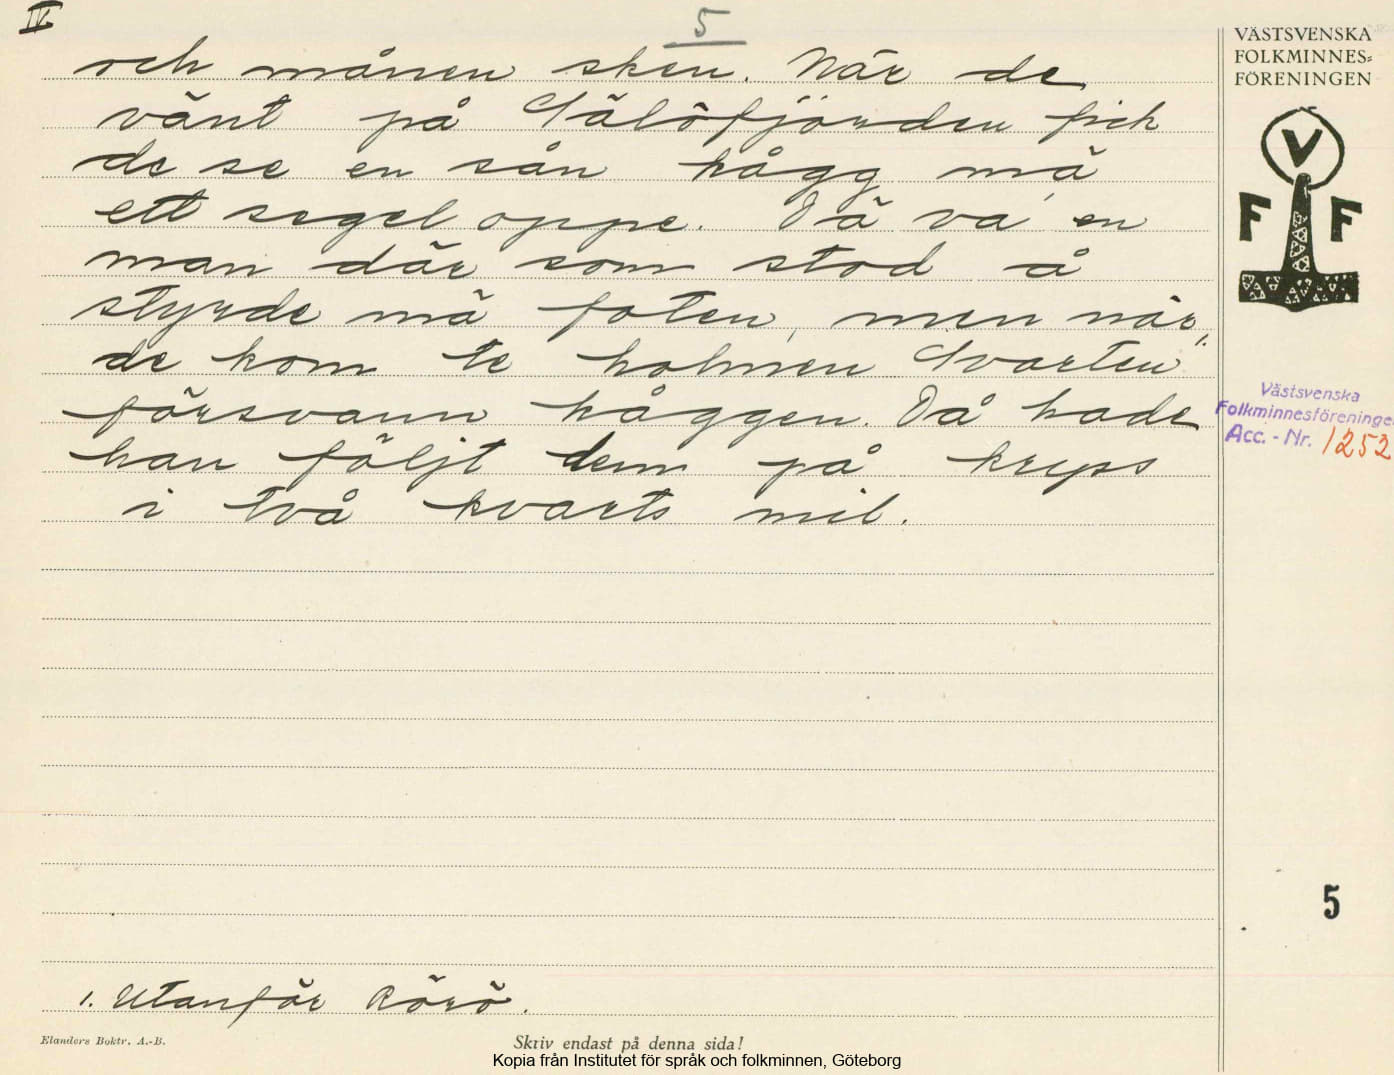 IV
5
och månen sken. När de
vänt på Sälöfjörden fick
de se en sån kågg mä
ett segel oppe. Dä va en
man där som stod å
styrde mä foten, men när
de kom te holmen Svarten¹·
försvann kåggen. Då hade
han följt dem på kryss
i två kvarts mil.
1. Utanför Rörö.
Elanders Boktr. A.-B.
Skriv endast på denna sida!
Kopia från Institutet för språk och folkminnen, Göteborg
VÄSTSVENSKA
FOLKMINNES=
FÖRENINGEN
V
F F
Västsvenska
Folkminnesföreningen
Acc. - Nr. 1252
5